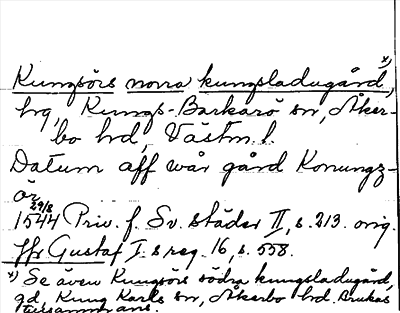 Kungsörs norra kungsladugård, x)
hg, Kungs-Barkarö sn, Åker-
bo hd, Västm. l.
Datum aff wår gård Konungz-
ör
29/8
1544 Priv. f. Sv. städer II, s. 213. orig.
Jfr Gustaf I:s reg. 16, s. 558.
x) Se även Kungsörs södra kungsladugård,
gd, Kung Karls sn, Åkerbo hd. Brukas
tillsammans.